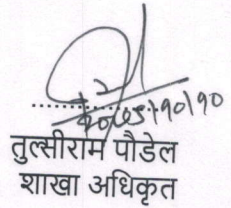 २०७५।१०।१०
तुल्सीराम पौडेल
शाखा अधिकृत